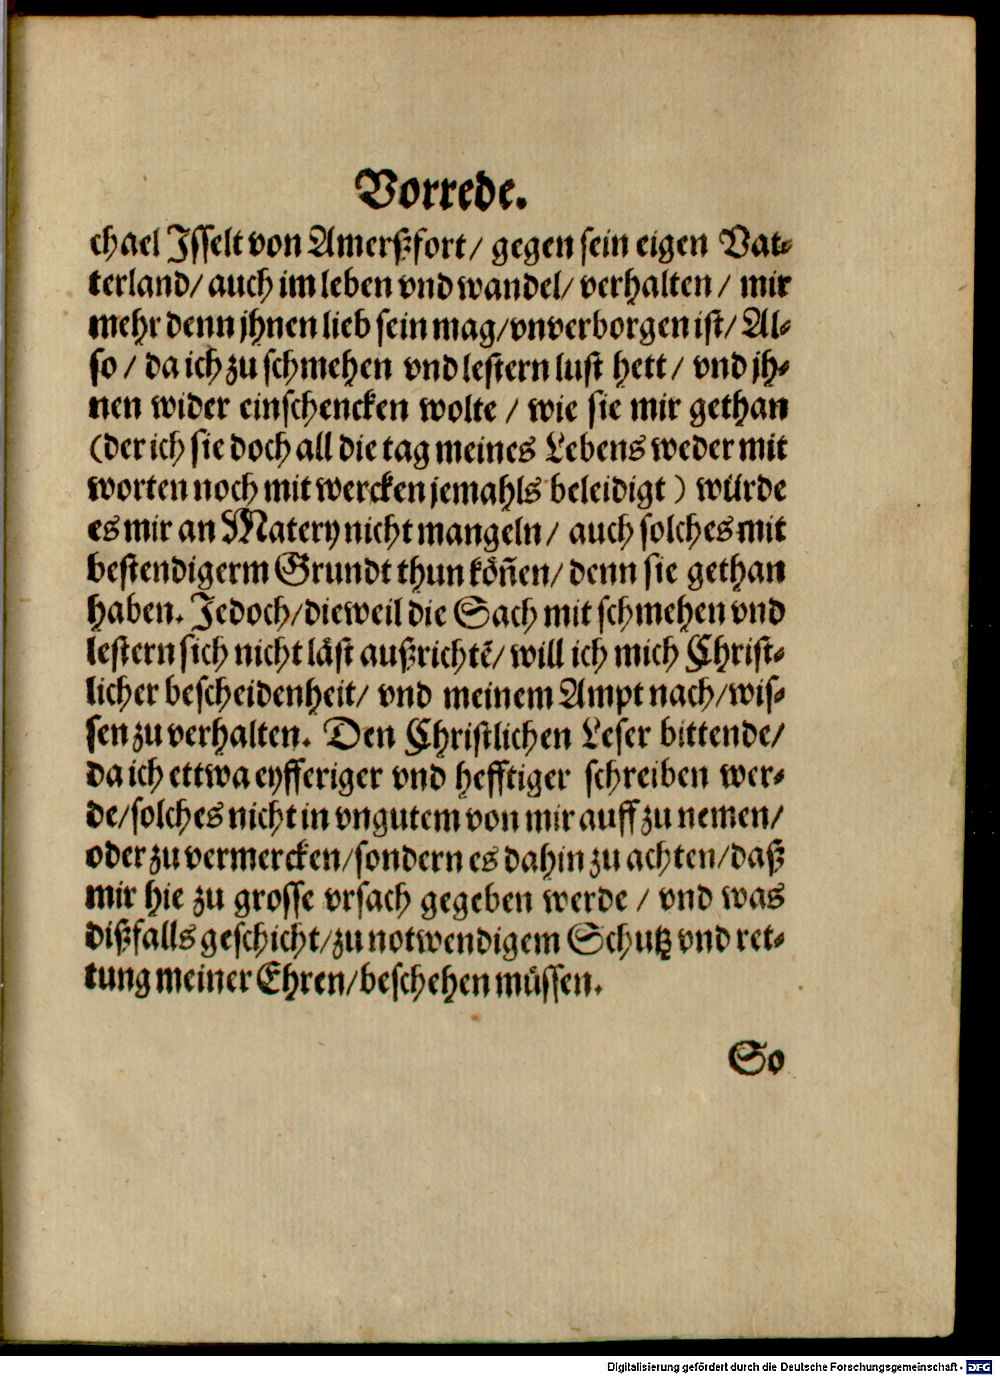 Vorrede.
chael Isselt von Amerßfort / gegen sein eigen Vat-
terland / auch im leben vnd wandel / verhalten / mir
mehr denn jhnen lieb sein mag / vnverborgen ist / Al-
so / da ich zu schmehen vnd lestern lust hett / vnd jh-
nen wider einschencken wolte / wie sie mir gethan
(der ich sie doch all die tag meines Lebens weder mit
worten noch mit wercken jemahls beleidigt) würde
es mir an Matery nicht mangeln / auch solches mit
bestendigerm Grundt thun köñen / denn sie gethan
haben. Jedoch / dieweil die Sach mit schmehen vnd
lestern sich nicht läst außrichtẽ / will ich mich Christ-
licher bescheidenheit / vnd meinem Ampt nach / wis-
sen zu verhalten. Den Christlichen Leser bittende /
da ich ettwa eyfferiger vnd hefftiger schreiben wer-
de / solches nicht in vngutem von mir auff zu nemen /
oder zu vermercken / sondern es dahin zu achten / daß
mir hie zu grosse vrsach gegeben werde / vnd was
dißfalls geschicht / zu notwendigem Schutz vnd ret-
tung meiner Ehren / beschehen müssen.
So
Digitalisierung gefördert durch die Deutsche Forschungsgemeinschaft - DFG